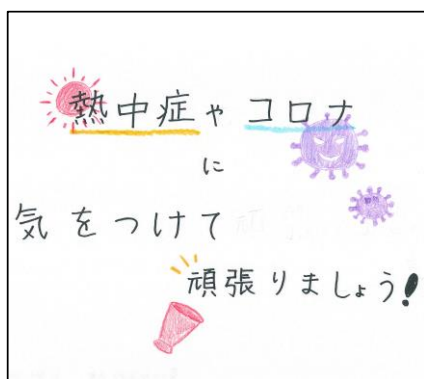 熱中症やコロナ
に
気をつけて
頑張りましょう!